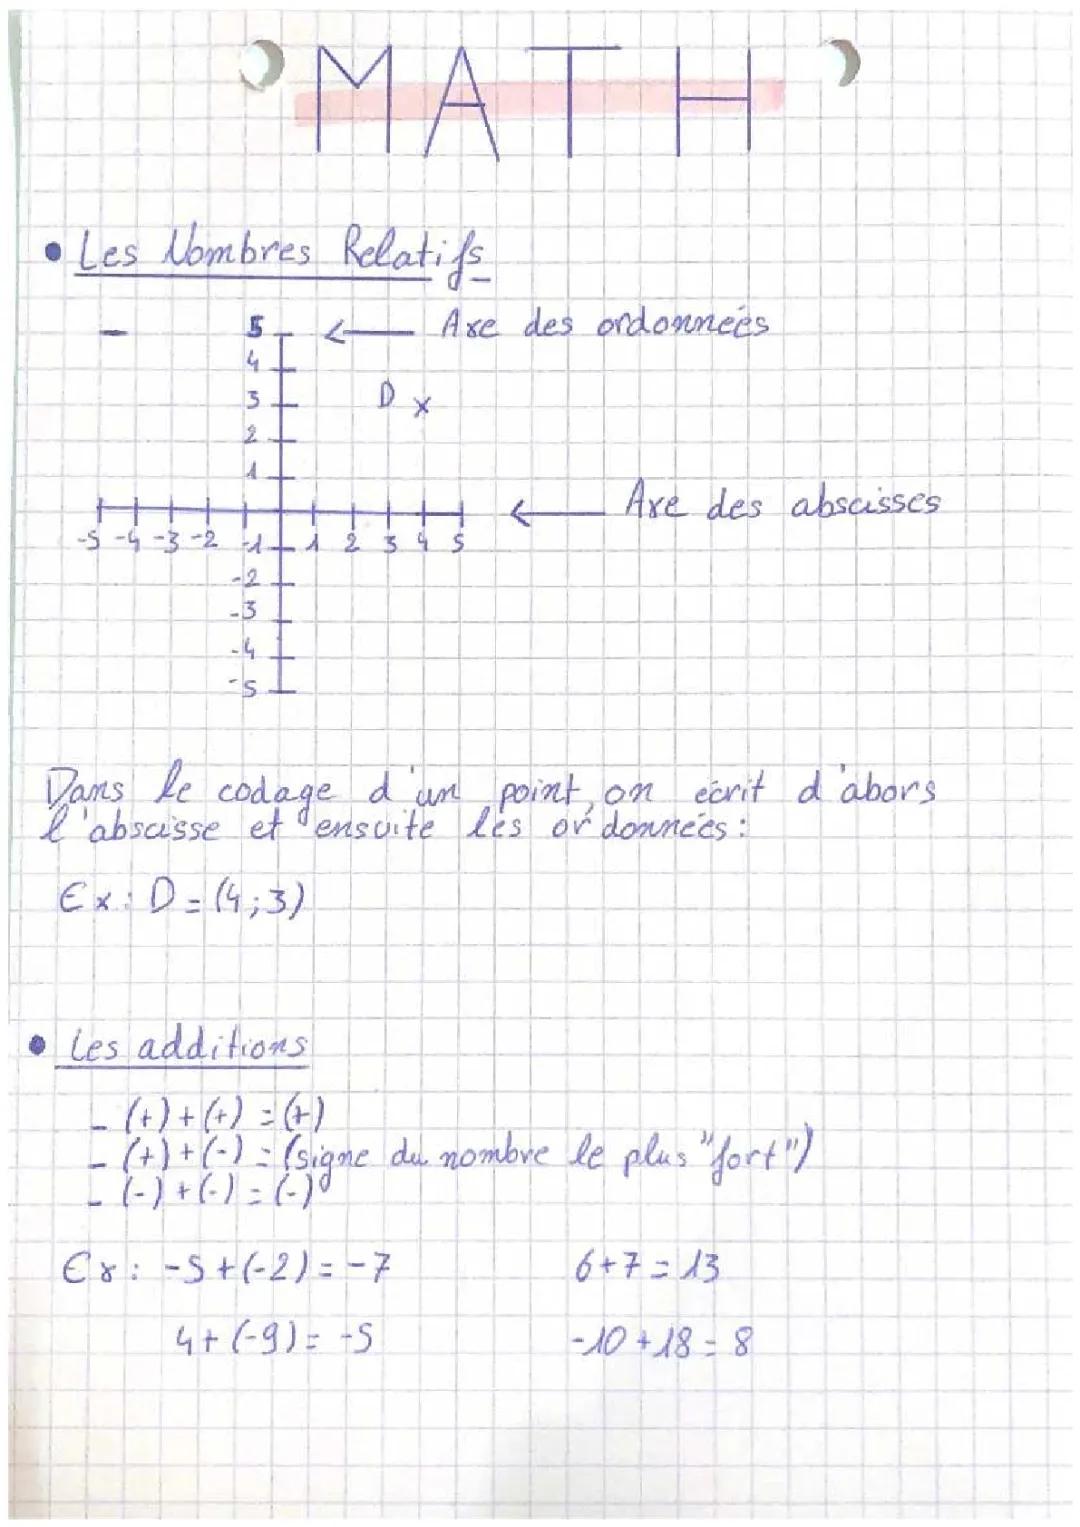 MATH
• Les Nombres Relatifs
5 ← Axe des ordonneés
4
3 D x
2
1
← Axe des abscisses
-5 -4 -3 -2 -1 1 2 3 4 5
-2
-3
-4
-5
Dans le codage d'un point, on écrit d'abors
l'abscisse et ensuite les ordonnées :
Ex : D = (4 ; 3)
• Les additions
- (+) + (+) = (+)
- (+) + (-) = (signe du nombre le plus "fort")
- (-) + (-) = (-)
Ex : -5 + (-2) = -7 6 + 7 = 13
4 + (-9) = -5 -10 + 18 = 8